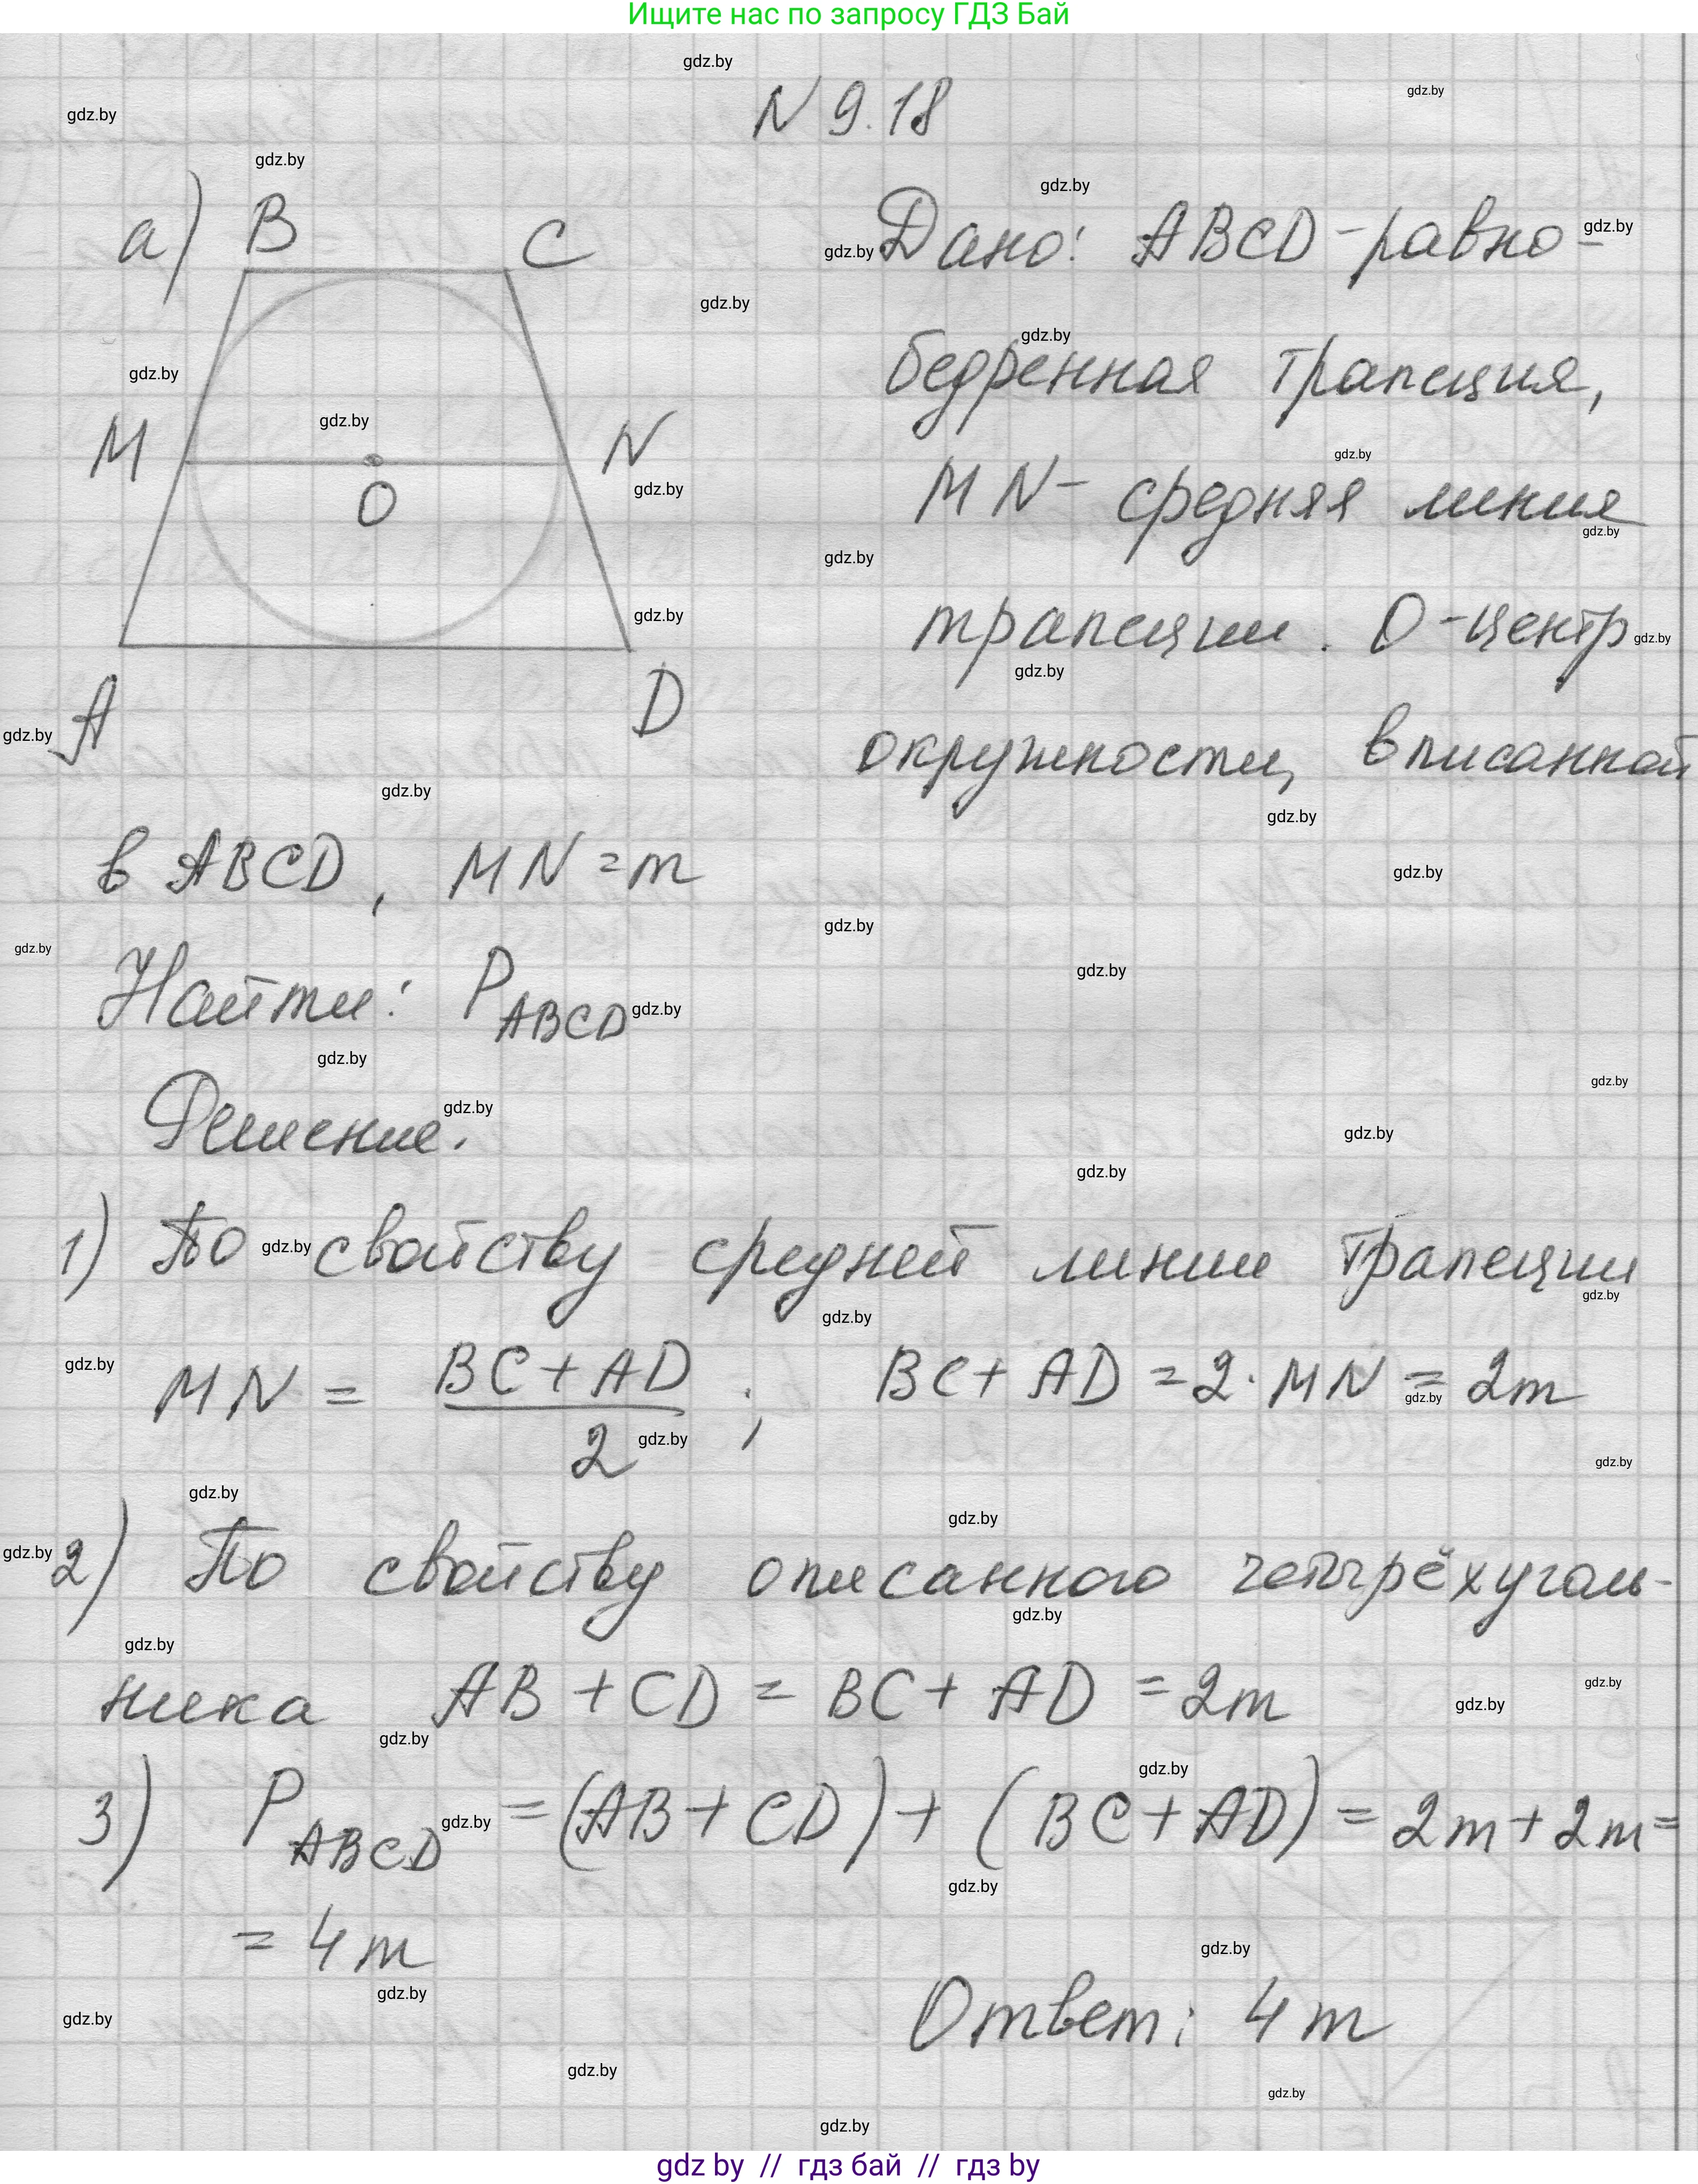 Ищите нас по запросу ГДЗ Бай
N 9.18
а) B C
M N
O
A D
Дано: ABCD - равно-
бедренная трапеция,
MN - средняя линия
трапеции. O - центр
окружности, вписанной
в ABCD, MN = m
Найти: P_ABCD
Решение.
1) По свойству средней линии трапеции
MN = (BC + AD)/2; BC + AD = 2 · MN = 2m
2) По свойству описанного четырёхуголь-
ника AB + CD = BC + AD = 2m
3) P_ABCD = (AB + CD) + (BC + AD) = 2m + 2m =
= 4m
Ответ: 4m
gdz by // гдз бай // гдз by